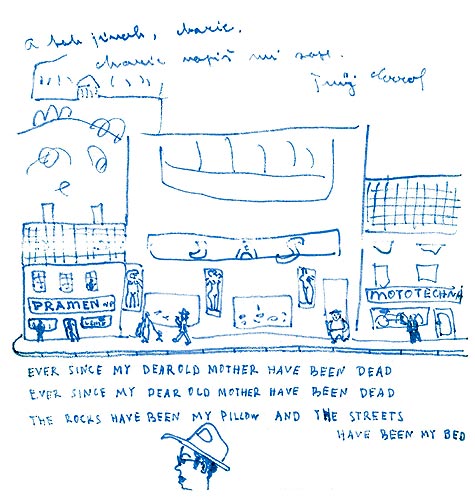 a tak jinak,
napiš mi zase.
Tvůj
PRAMEN
MOTOTECHNA
EVER SINCE MY DEAR OLD MOTHER HAVE BEEN DEAD
EVER SINCE MY DEAR OLD MOTHER HAVE BEEN DEAD
THE ROCKS HAVE BEEN MY PILLOW AND THE STREETS
HAVE BEEN MY BED